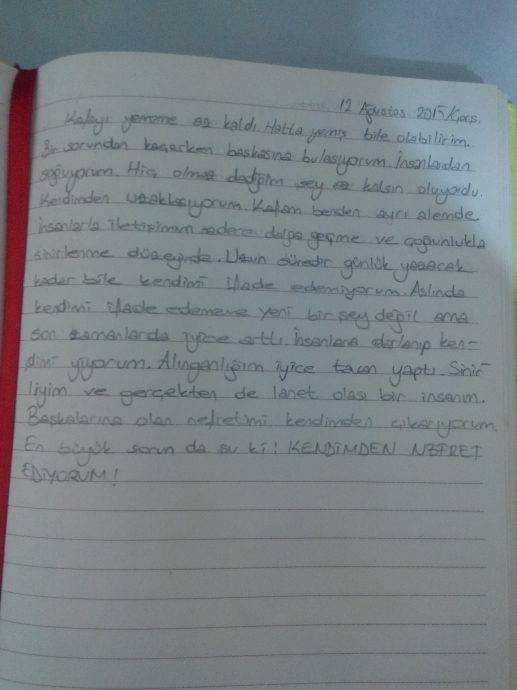 12 Ağustos 2015/Çarş.
Kafayı yememe az kaldı. Hatta yemiş bile olabilirim.
Bir sorundan kaçarken başkasına bulaşıyorum. İnsanlardan
soğuyorum. Hiç olmaz dediğim şey az kalsın oluyordu.
Kendimden uzaklaşıyorum. Kafam benden ayrı alemde.
İnsanlarla iletişimim sadece dalga geçme ve çoğunlukla
sinirlenme düzeyinde. Uzun süredir günlük yazacak
kadar bile kendimi ifade edemiyorum. Aslında
kendimi ifade edememe yeni bir şey değil ama
son zamanlarda iyice arttı. İnsanlara darlanıp ken-
dimi yiyorum. Alınganlığım iyice tavan yaptı. Sinir-
liyim ve gerçekten de lanet olası bir insanım.
Başkalarına olan nefretimi kendimden çıkarıyorum.
En büyük sorun da şu ki: KENDİMDEN NEFRET
EDİYORUM!